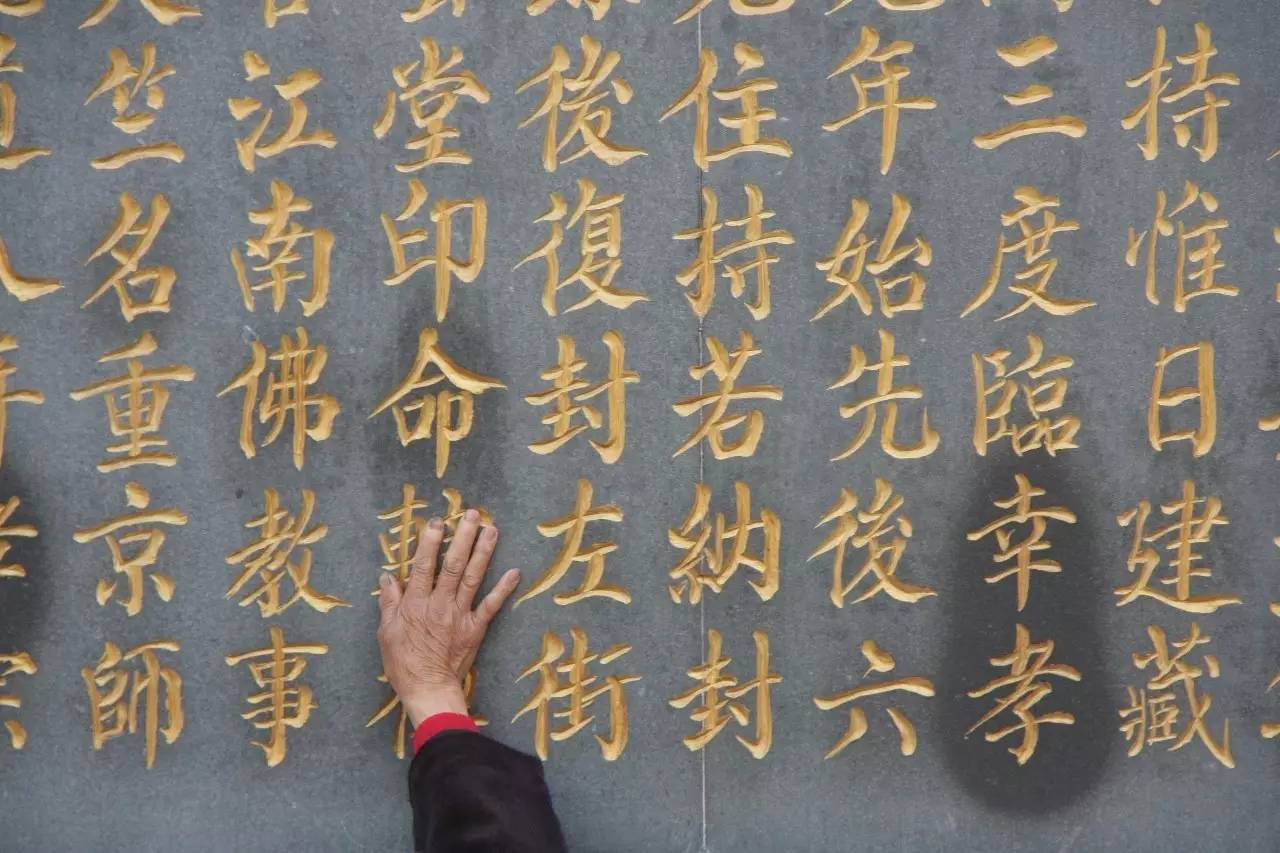 持惟日建藏
三度臨幸孝
年始先後六
住持若納封
後復封左街
堂印命
江南佛教事
竺名重京師